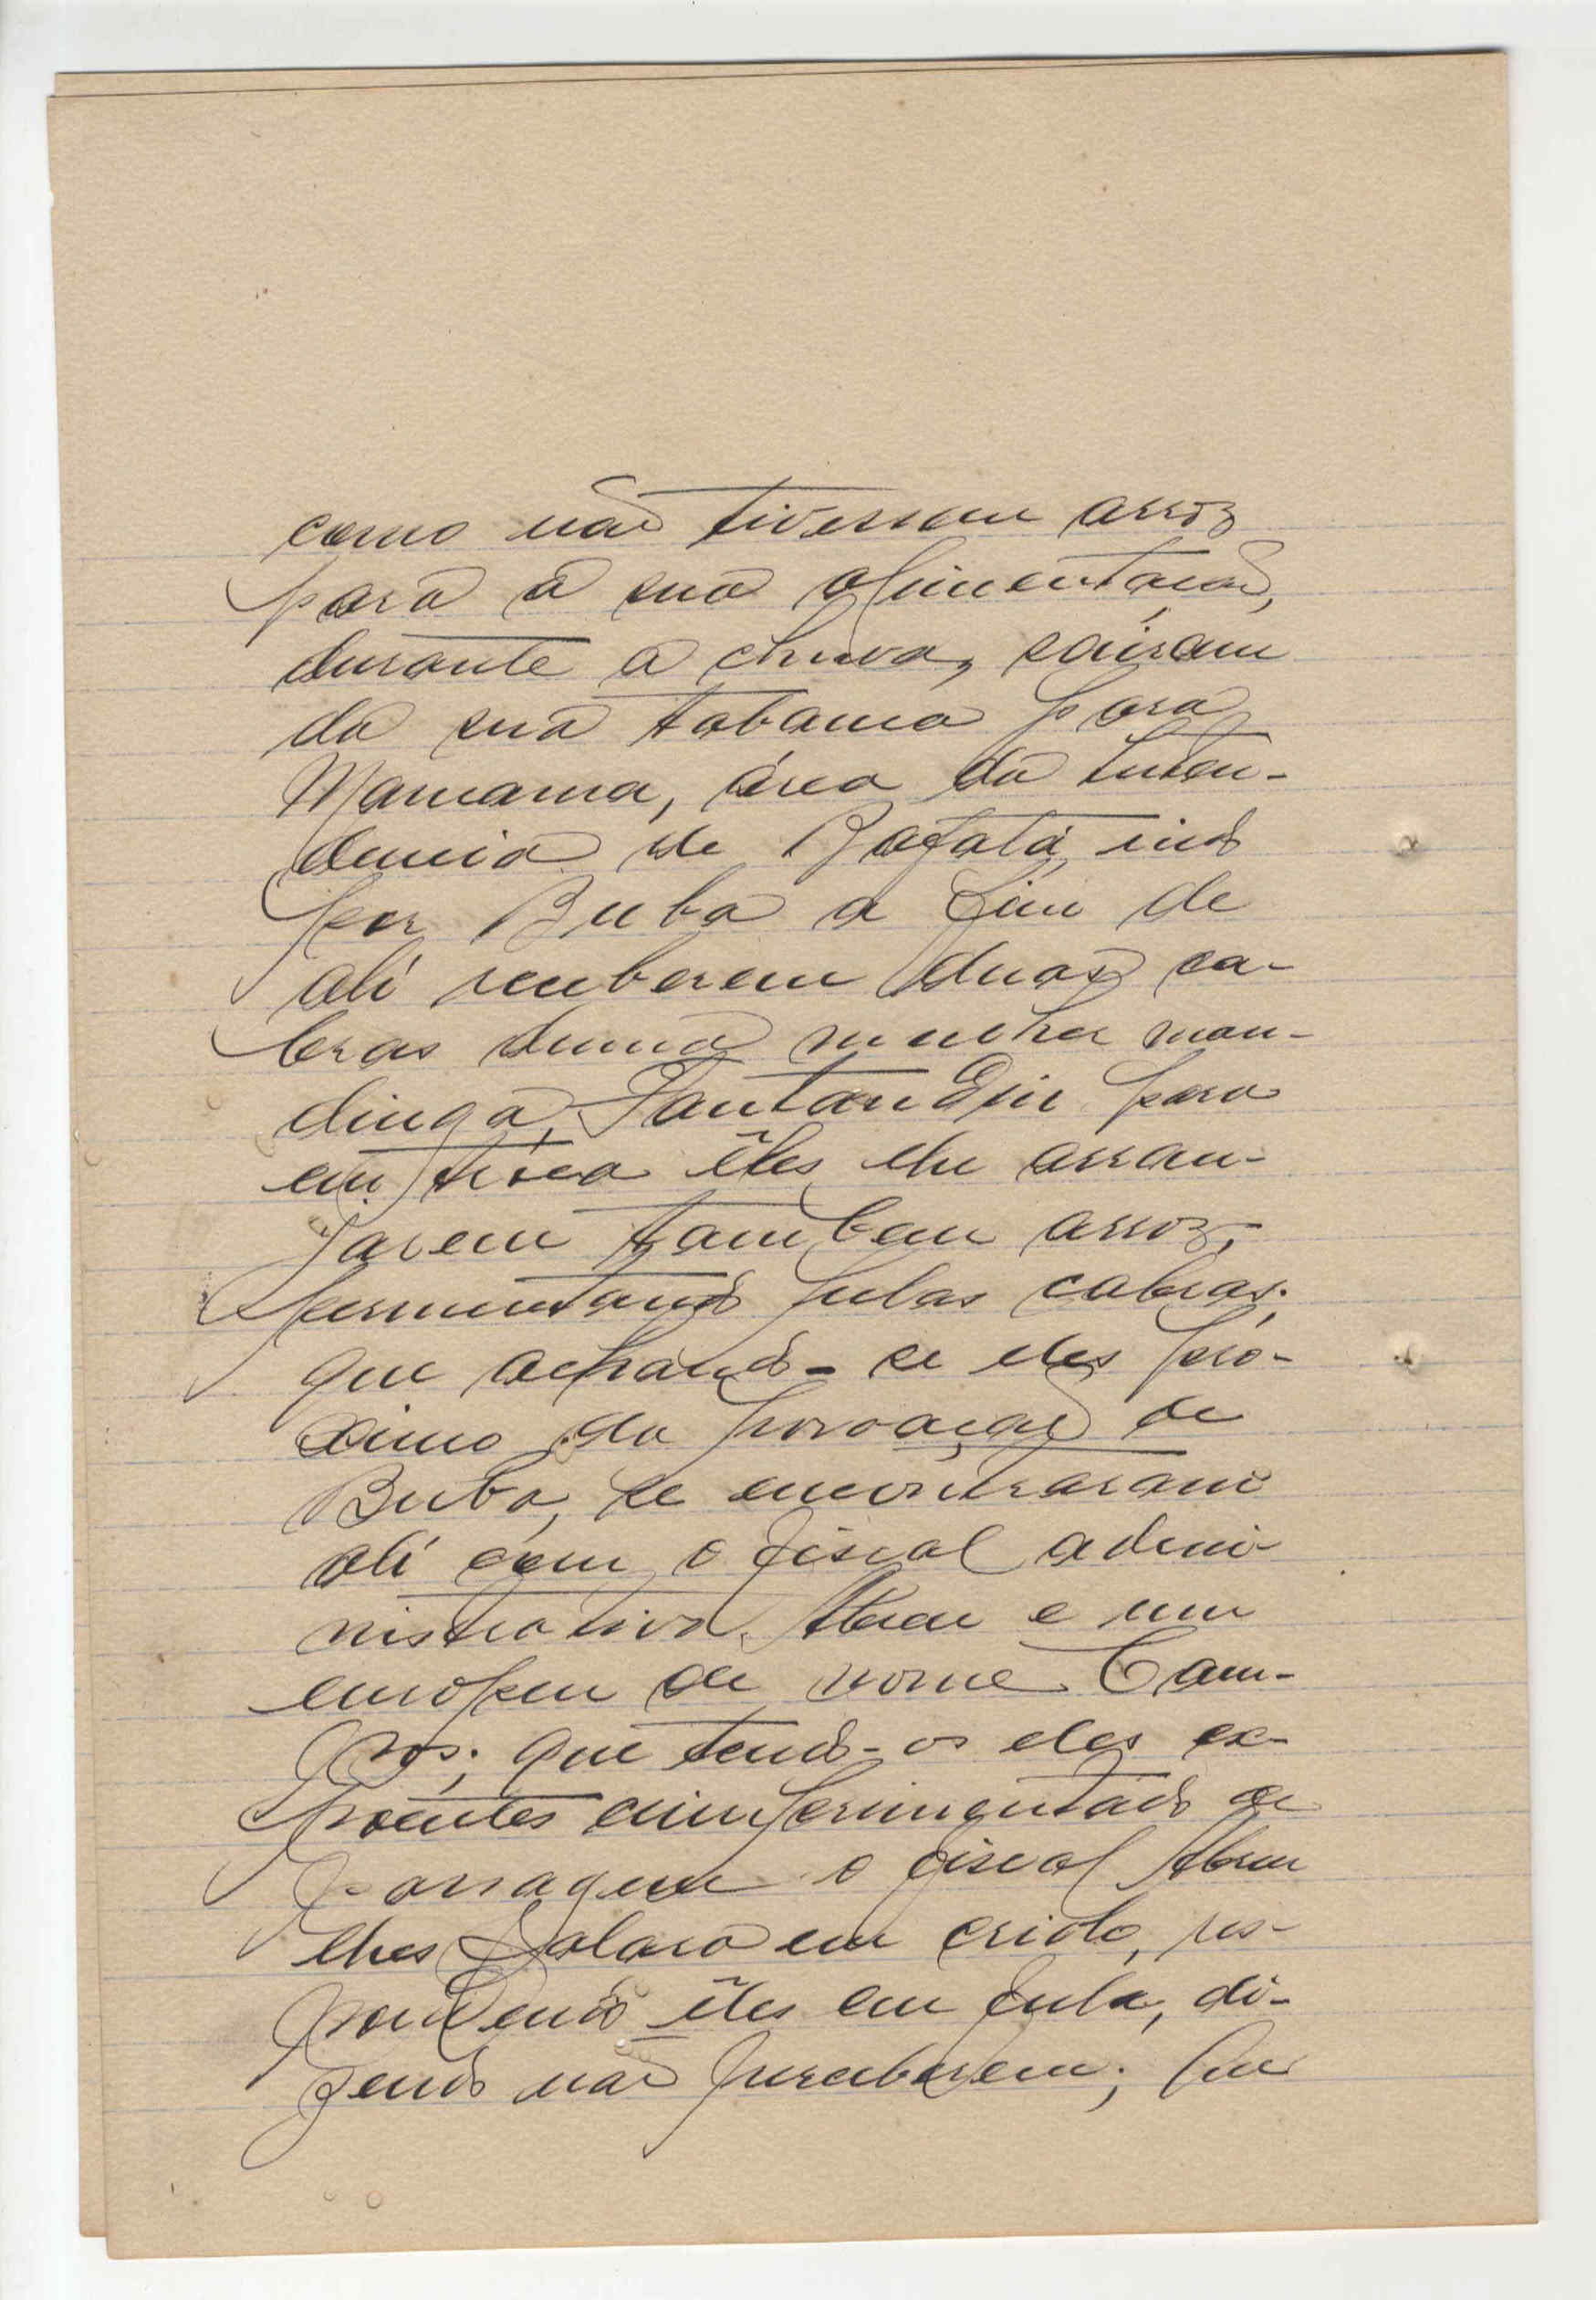 como não tivessem arroz
para a sua alimentação,
durante a chuva, sairam
da sua tabanca para
Mamama, área da Inten-
dencia de Bafatá, indo
por Buba a fim de
ali receberem duas ca-
bras duma mulher man-
dinga, Fantandjin para
em troca êles lhe arran-
jarem tambem arroz,
permutando pelas cabras;
que achando-se eles pró-
ximo da povoação de
Buba, se encontraram
ali com o fiscal admi-
nistrativo Abreu e um
europeu de nome Cam-
pos; que tendo-os eles ex-
poentes cumprimentado de
passagem o fiscal Abreu
lhes falara em criolo, res-
pondendo êles em fula, di-
zendo não perceberem; que